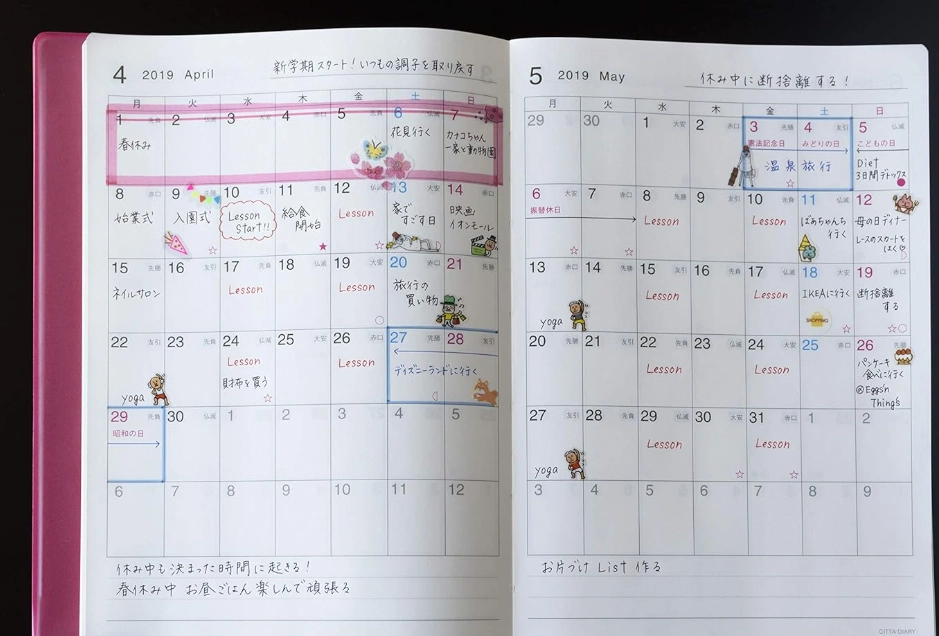 4 2019 April 新学期スタート！いつもの調子を取り戻す
月 火 水 木 金 土 日
1 先負 2 仏滅 3 大安 4 赤口 5 先勝 6 友引 7
春休み
花見行く
カナコちゃん
一家と動物園
8 赤口 9 先勝 10 友引 11 先負 12 仏滅 13 大安 14 赤口
始業式
入園式
Lesson
Start!!
給食
開始
Lesson
家で
すごす日
映画
イオンモール
15 先勝 16 友引 17 先負 18 仏滅 19 大安 20 赤口 21 先勝
ネイルサロン
Lesson
Lesson
旅行の
買い物
22 友引 23 先負 24 仏滅 25 大安 26 赤口 27 先勝 28 友引
yoga
Lesson
財布を買う
Lesson
ディズニーランドに行く
29 先負 30 仏滅 1 2 3 4 5
昭和の日
6 7 8 9 10 11 12
休み中も決まった時間に起きる！
春休み中 お昼ごはん楽しんで頑張る
5 2019 May 休み中に断捨離する！
月 火 水 木 金 土 日
29 30 1 大安 2 赤口 3 先勝 4 友引 5 仏滅
憲法記念日 みどりの日 こどもの日
温泉旅行
Diet
3日間デトックス
6 先勝 7 友引 8 先負 9 仏滅 10 大安 11 赤口 12
振替休日
Lesson
Lesson
ばあちゃんち
行く
母の日ディナー
レースのスカートを
はく
13 友引 14 先負 15 仏滅 16 大安 17 赤口 18 先勝 19 友引
yoga
Lesson
Lesson
IKEAに行く
SHOPPING
断捨離
する
20 先負 21 仏滅 22 大安 23 赤口 24 先勝 25 友引 26
yoga
Lesson
Lesson
パンケーキ
食べに行く
@Eggs'n
Things
27 友引 28 先負 29 仏滅 30 大安 31 赤口 1 2
yoga
Lesson
Lesson
3 4 5 6 7 8 9
お片づけ List 作る
CITTA DIARY